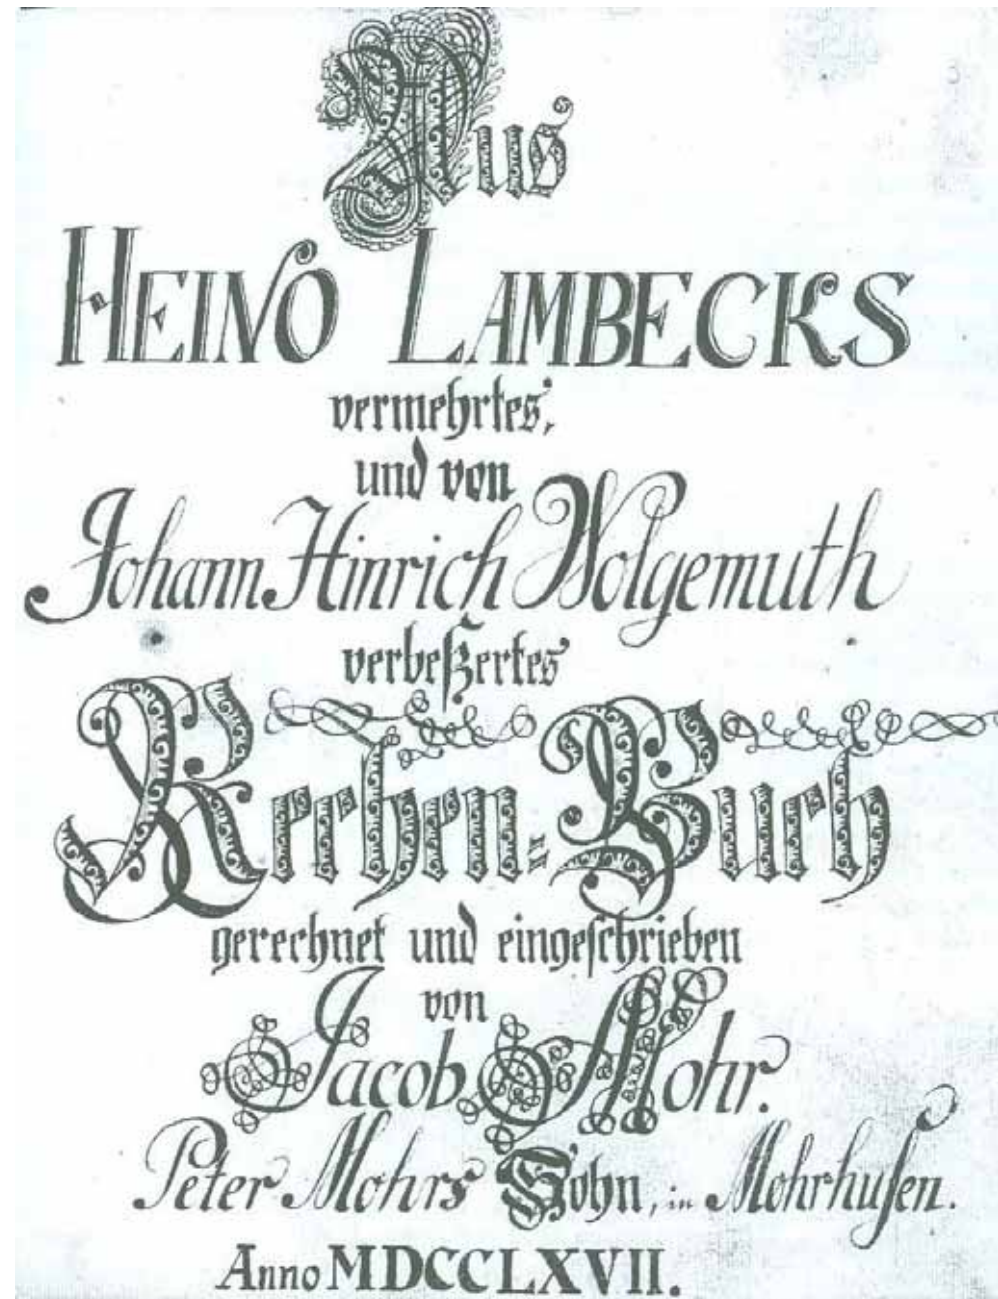 Aus
HEINO LAMBECKS
vermehrtes,
und von
Johann Hinrich Wolgemuth
verbeßertes
Rechen-Buch
gerechnet und eingeschrieben
von
Jacob Mohr.
Peter Mohrs Sohn, in Mohrhusen.
Anno MDCCLXVII.